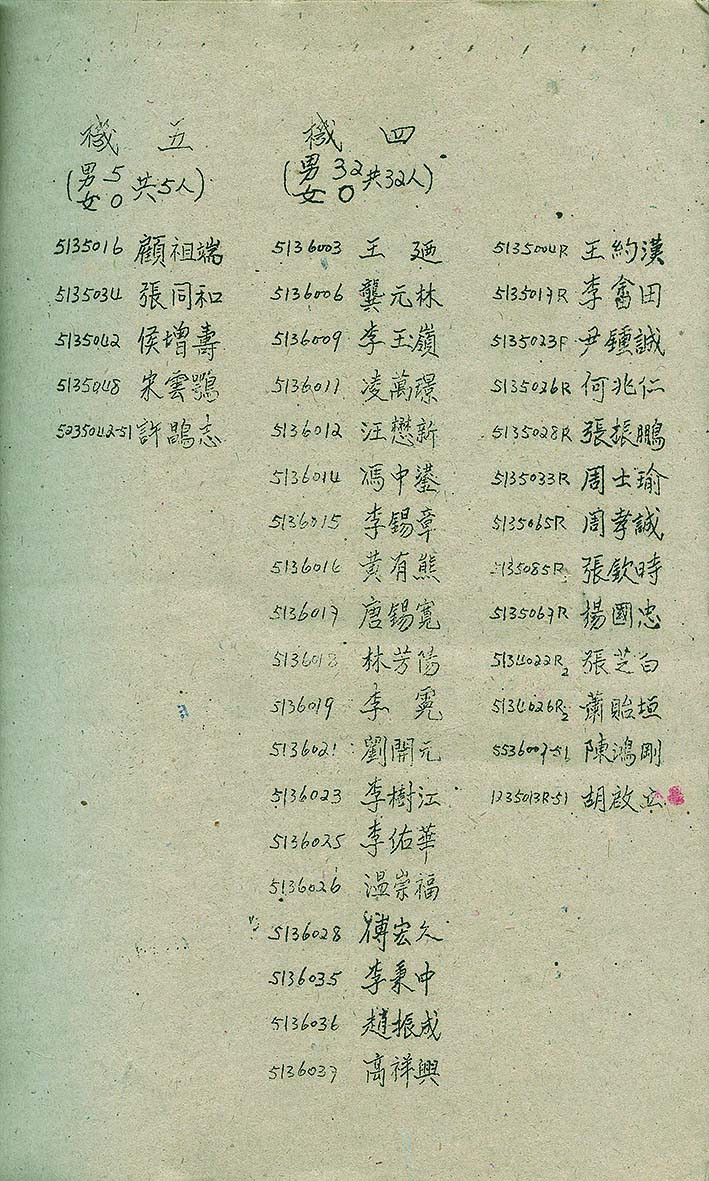 機 五
(男 5 女 0 共5人)
5135016 顧祖端
5135034 張同和
5135042 侯增壽
5135048 宋雲鶚
5235042-51 許鵾志
機 四
(男 32 女 0 共32人)
5136003 王 廼
5136006 龔元林
5136009 李玉嶺
5136011 凌萬璟
5136012 汪懋新
5136014 馮中鎏
5136015 李錫章
5136016 黃有熊
5136017 唐錫寬
5136018 林芳陽
5136019 李 霓
5136021 劉開元
5136023 李樹江
5136025 李佑華
5136026 溫崇福
5136028 傅宏久
5136035 李秉中
5136036 趙振成
5136037 高祥興
5135004R 王約漢
5135017R 李畬田
5135023F 尹鍾誠
5135026R 何兆仁
5135028R 張振鵬
5135033R 周士瑜
5135065R 周孝誠
5135085R 張欽時
5135067R 楊國忠
5134022R2 張芝白
5134026R2 蕭貽垣
5536007-51 陳鴻剛
1235013R-51 胡啟立